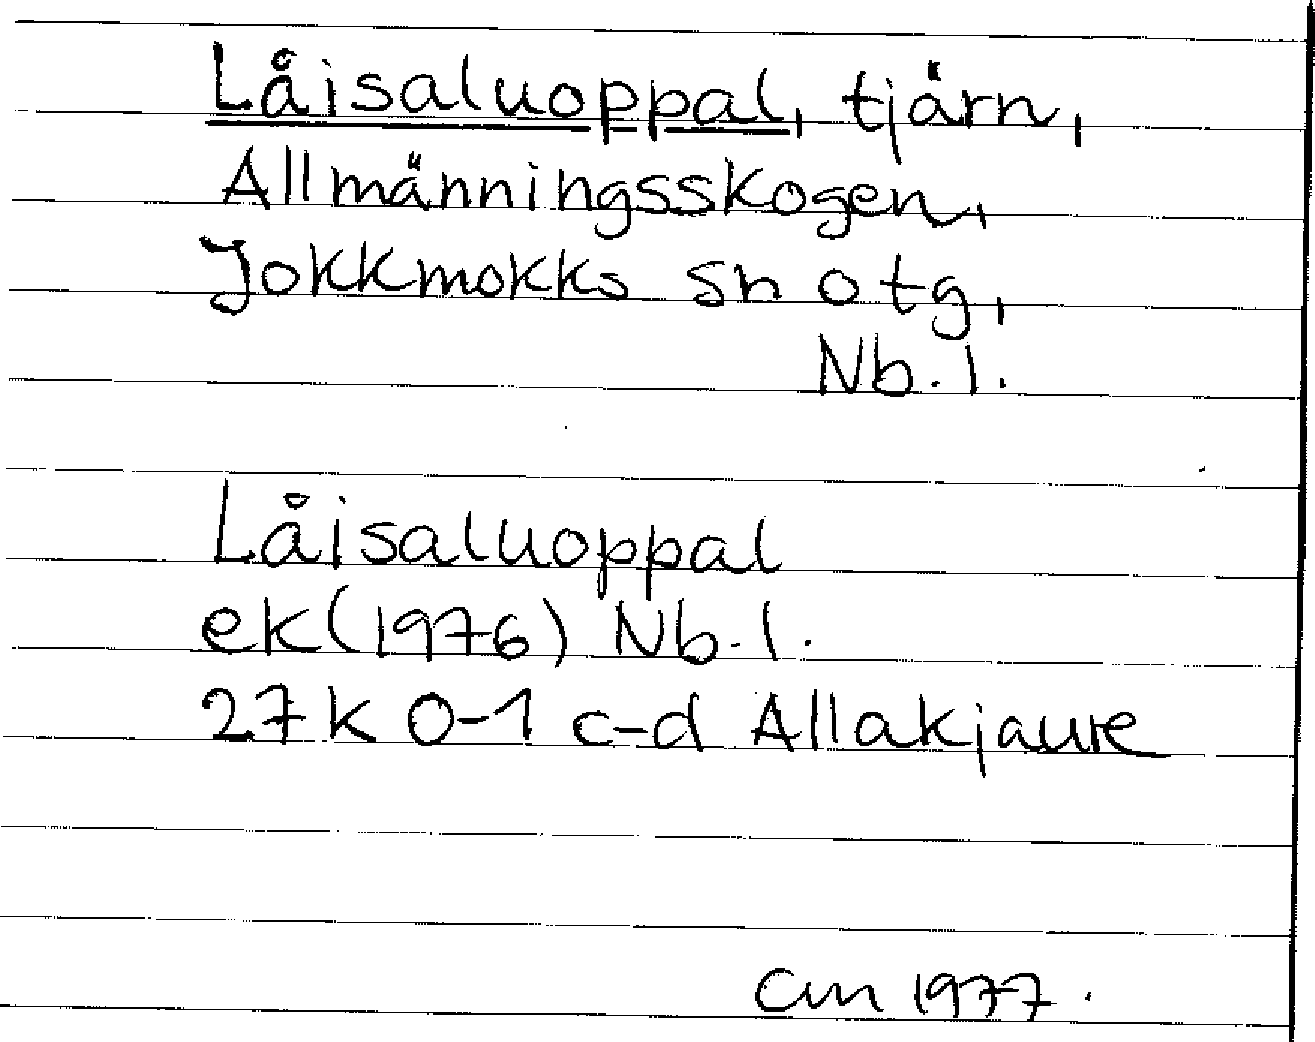 Låisaluoppal, tjärn,
Allmänningsskogen,
Jokkmokks sn o tg,
Nb. l.
Låisaluoppal
ek (1976) Nb. l.
27 K 0-1 c-d Allakjaure
1977.